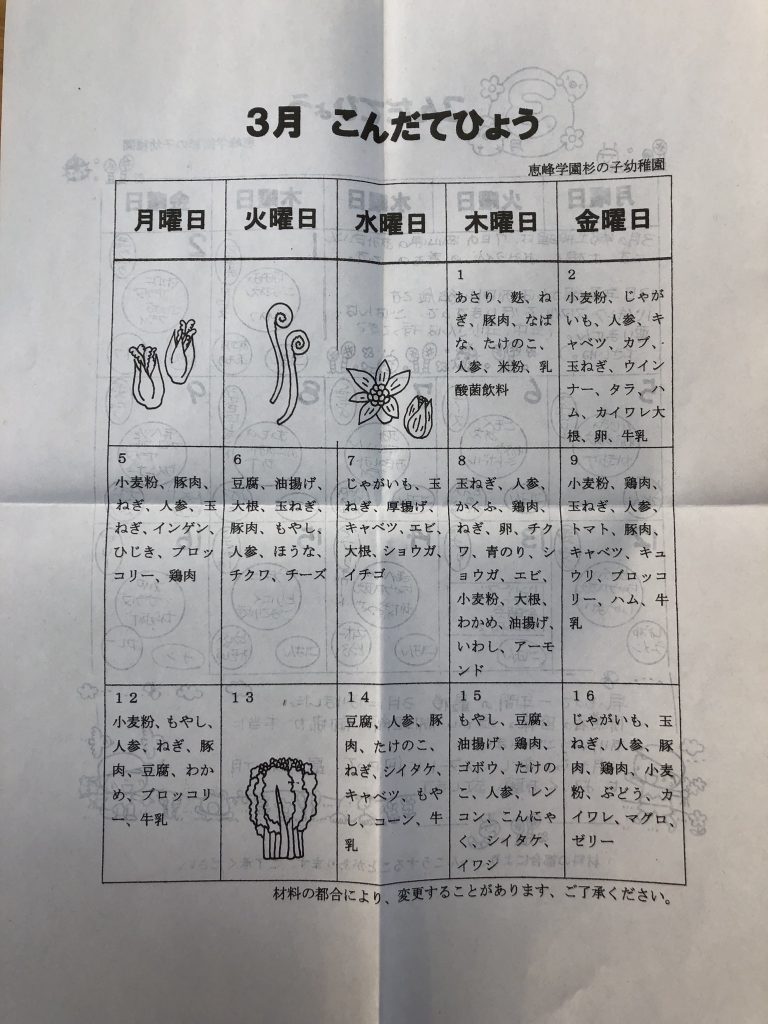 3月 こんだてひょう
恵峰学園杉の子幼稚園
月曜日 火曜日 水曜日 木曜日 金曜日
1
あさり、麩、ね
ぎ、豚肉、なば
な、たけのこ、
人参、米粉、乳
酸菌飲料
2
小麦粉、じゃが
いも、人参、キ
ャベツ、カブ、
玉ねぎ、ウイン
ナー、タラ、ハ
ム、カイワレ大
根、卵、牛乳
5
小麦粉、豚肉、
ねぎ、人参、玉
ねぎ、インゲン、
ひじき、ブロッ
コリー、鶏肉
6
豆腐、油揚げ、
大根、玉ねぎ、
豚肉、もやし、
人参、ほうな、
チクワ、チーズ
7
じゃがいも、玉
ねぎ、厚揚げ、
キャベツ、エビ、
大根、ショウガ、
イチゴ
8
玉ねぎ、人参、
かくふ、鶏肉、
ねぎ、卵、チク
ワ、青のり、シ
ョウガ、エビ、
小麦粉、大根、
わかめ、油揚げ、
いわし、アーモ
ンド
9
小麦粉、鶏肉、
玉ねぎ、人参、
トマト、豚肉、
キャベツ、キュ
ウリ、ブロッコ
リー、ハム、牛
乳
12
小麦粉、もやし、
人参、ねぎ、豚
肉、豆腐、わか
め、ブロッコリ
ー、牛乳
13
14
豆腐、人参、豚
肉、たけのこ、
ねぎ、シイタケ、
キャベツ、もや
し、コーン、牛
乳
15
もやし、豆腐、
油揚げ、鶏肉、
ゴボウ、たけの
こ、人参、レン
コン、こんにゃ
く、シイタケ、
イワシ
16
じゃがいも、玉
ねぎ、人参、豚
肉、鶏肉、小麦
粉、ぶどう、カ
イワレ、マグロ、
ゼリー
材料の都合により、変更することがあります、ご了承ください。